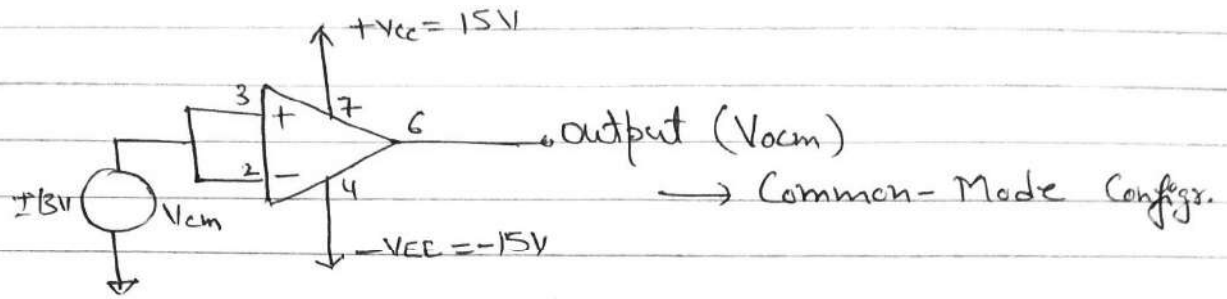 +Vcc = 15V
3
+
7
6
output (Vocm)
2
−
4
→ Common-Mode Configr.
±13V
Vcm
-VEE = -15V